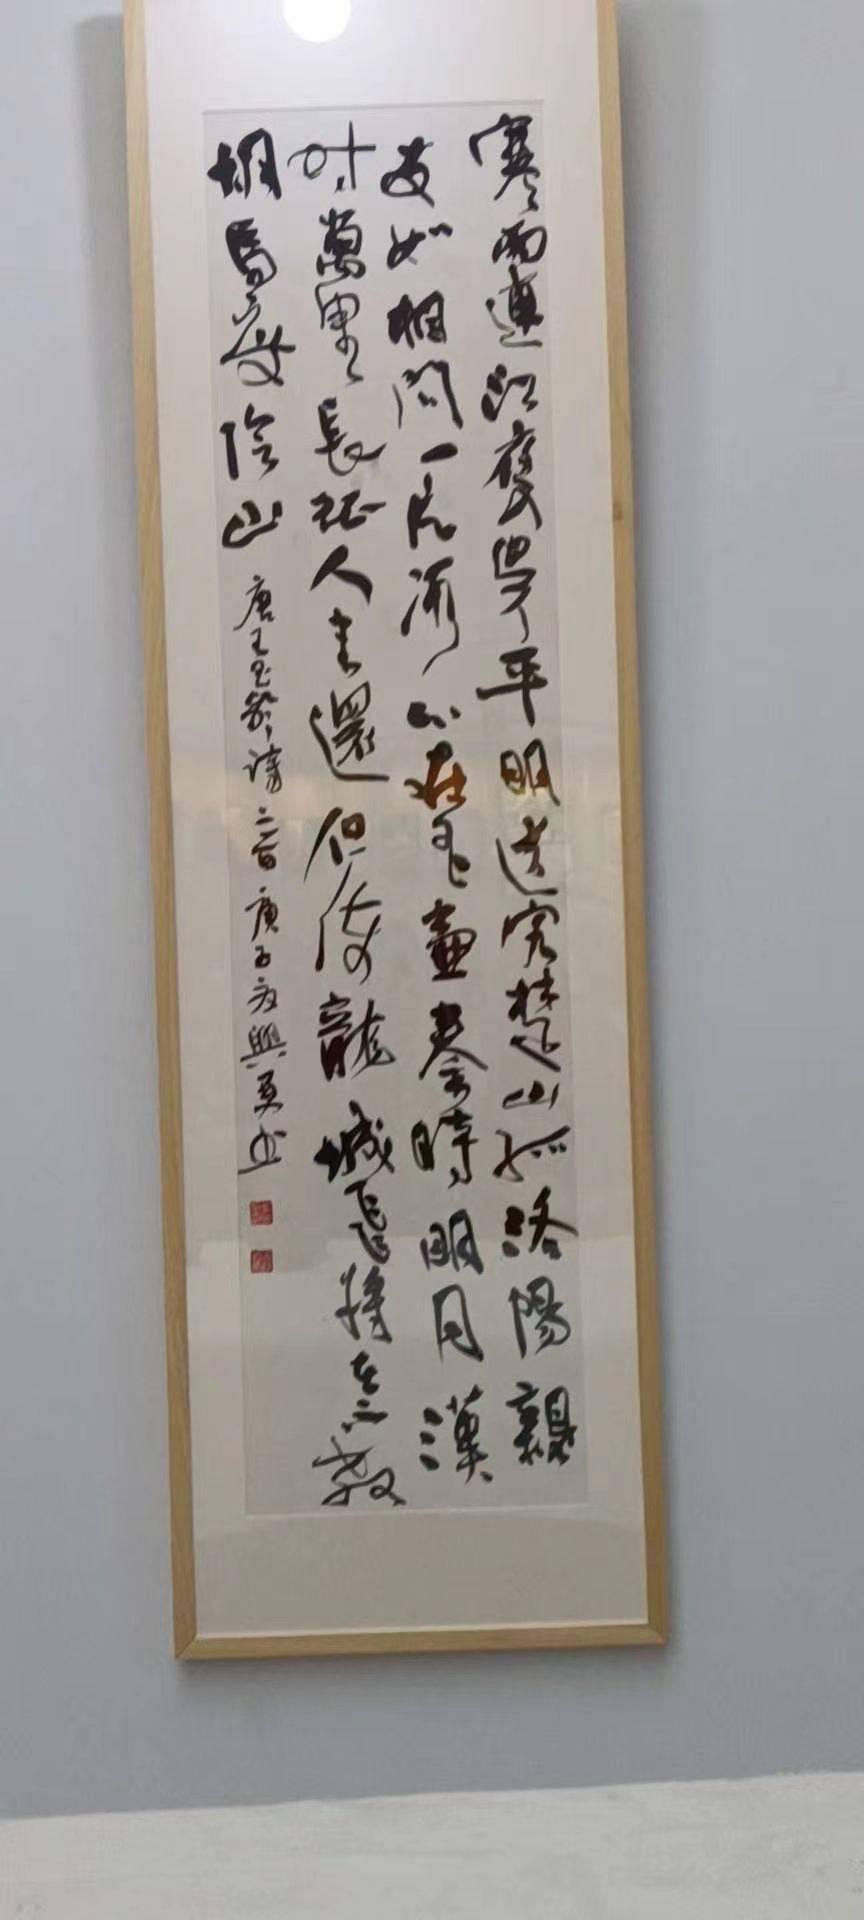 寒雨連江夜入吳平明送客楚山孤洛陽親
友如相問一片冰心在玉壺秦時明月漢
时萬里長征人未還但使龍城飛將在不教
胡馬度陰山 唐王昌齡詩二首 庚子夏興書